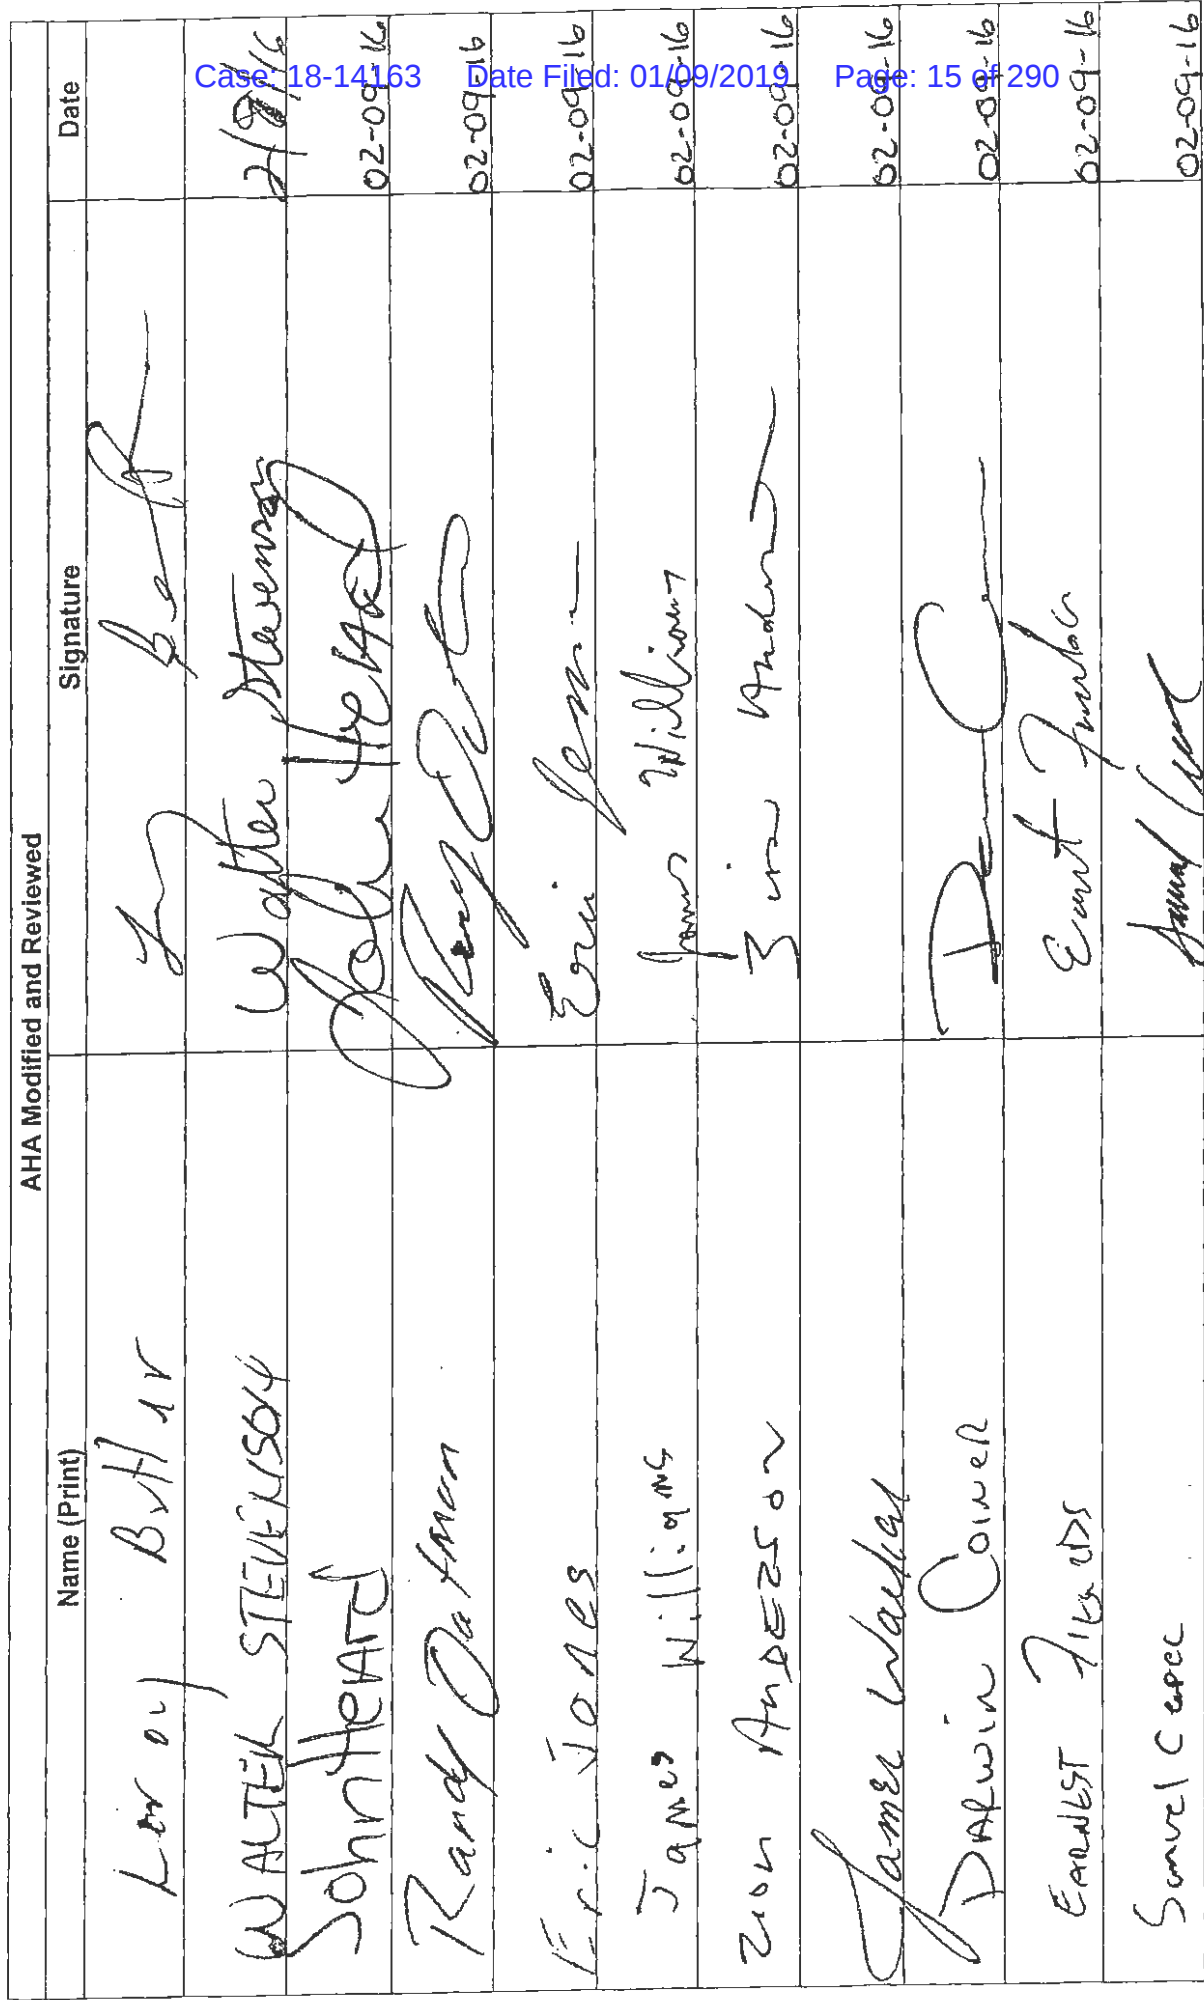 Case: 18-14163 Date Filed: 01/09/2019 Page: 15 of 290
AHA Modified and Reviewed
Name (Print) Signature Date
Leroy Butler
WALTER STEVENSON Walter Stevenson 2/9/16
John HeArd John HeArd 02-09-16
Randy Oatman 02-09-16
Eric Jones Eric Jones 02-09-16
James Williams James Williams 02-09-16
Zion AnDEZSon Zion 02-09-16
James Walker 02-09-16
DARwin CoineR 02-09-16
EARNEST 02-09-16
Samuel 02-09-16